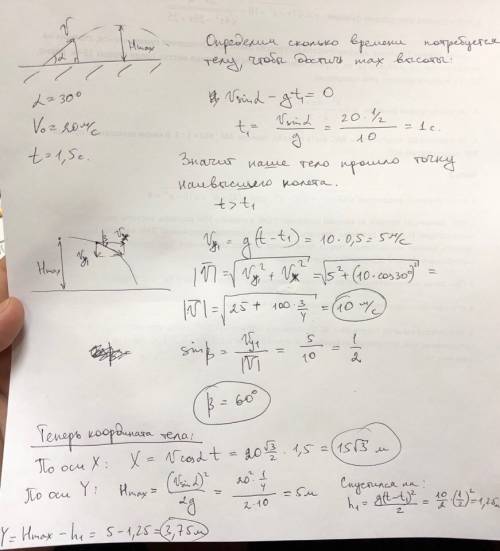 v
α
Hmax
Определим сколько времени потребуется
телу, чтобы достичь max высоты:
α = 30°
V₀ = 20 м/с
t = 1,5 с.
v sinα − gt₁ = 0
t₁ = v sinα / g = 20 · 1/2 / 10 = 1 с.
Значит наше тело прошло точку
наивысшего полета.
t > t₁
Hmax
β
Vy₁
Vx
Vy₁ = g(t − t₁) = 10 · 0,5 = 5 м/с
|V̄| = √(Vy₁² + Vx²) = √(5² + (10 · cos30°)²) =
|V̄| = √(25 + 100 · 3/4) = 10 м/с
sinβ = Vy₁ / |V̄| = 5/10 = 1/2
β = 60°
Теперь координата тела:
По оси X: X = v cosα t = 20 √3/2 · 1,5 = 15√3 м
По оси Y: Hmax = (v sinα)² / 2g = 20² · 1/4 / 2·10 = 5 м
Спустился на:
h₁ = g(t − t₁)² / 2 = 10/2 · (1/2)² = 1,25 м
Y = Hmax − h₁ = 5 − 1,25 = 3,75 м